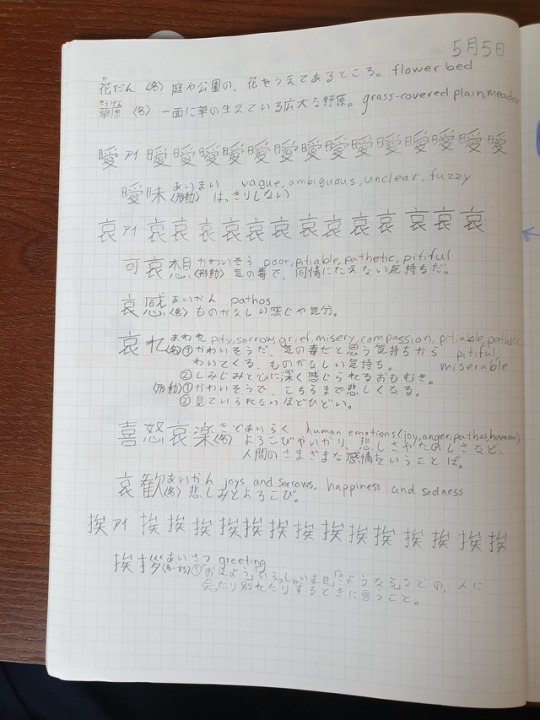 5月5日
花だん〈名〉庭や公園の、花をうえてあるところ。flower bed
草原〈名〉一面に草の生えている広大な野原。grass-covered plain, meadow
曖 アイ 曖 曖 曖 曖 曖 曖 曖 曖 曖 曖 曖 曖 曖
曖昧 あいまい vague, ambiguous, unclear, fuzzy
〈形動〉はっきりしない
哀 アイ 哀 哀 哀 哀 哀 哀 哀 哀 哀 哀 哀 哀
可哀想 かわいそう poor, pitiable, pathetic, pitiful
〈形動〉気の毒で、同情にたえない気持ちだ。
哀感 あいかん pathos
〈名〉ものがなしい感じや気分。
哀れ あわれ pity, sorrow, grief, misery, compassion, pitiable, pathetic
〈名〉①かわいそうだ、気の毒だと思う気持ちから pitiful,
わいてくる、ものがなしい気持ち。 miserable
②しみじみと心に深く感じられるおもむき。
〈形動〉①かわいそうで、こちらまで悲しくなる。
②見ていられないほどひどい。
喜怒哀楽 きどあいらく human emotions (joy, anger, pathos, humor)
〈名〉よろこびやいかり、悲しさやたのしさなど、
人間のさまざまな感情をいうことば。
哀歓 あいかん joys and sorrows, happiness and sadness
〈名〉悲しみとよろこび。
挨 アイ 挨 挨 挨 挨 挨 挨 挨 挨 挨 挨 挨 挨 挨 挨
挨拶 あいさつ greeting
①「おはよう」「いらっしゃいませ」「さようなら」などの、人に
会ったり別れたりするときに言うこと。